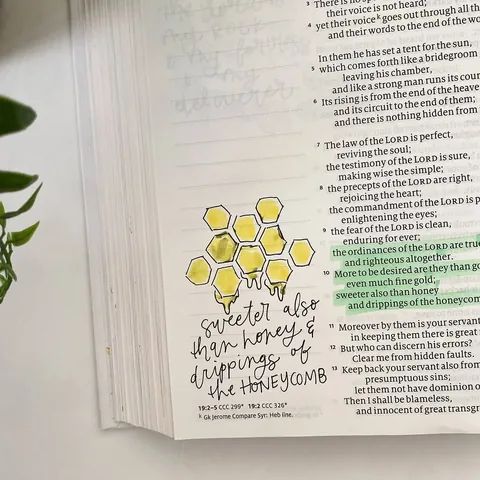 3 There is no sp
their voice is not heard;
4 yet their voice k goes out through all th
and their words to the end of the wo
In them he has set a tent for the sun,
5 which comes forth like a bridegroom
leaving his chamber,
and like a strong man runs its cour
6 Its rising is from the end of the heave
and its circuit to the end of them;
and there is nothing hidden from
7 The law of the LORD is perfect,
reviving the soul;
the testimony of the LORD is sure,
making wise the simple;
8 the precepts of the LORD are right,
rejoicing the heart;
the commandment of the LORD is p
enlightening the eyes;
9 the fear of the LORD is clean,
enduring for ever;
the ordinances of the LORD are true
and righteous altogether.
10 More to be desired are they than go
even much fine gold;
sweeter also than honey
and drippings of the honeycom
11 Moreover by them is your servant
in keeping them there is great
12 But who can discern his errors?
Clear me from hidden faults.
13 Keep back your servant also from
presumptuous sins;
let them not have dominion o
Then I shall be blameless,
and innocent of great transgr
sweeter also
than honey &
drippings of
the HONEYCOMB
19:2–5 CCC 299* 19:2 CCC 326*
k Gk Jerome Compare Syr: Heb line.